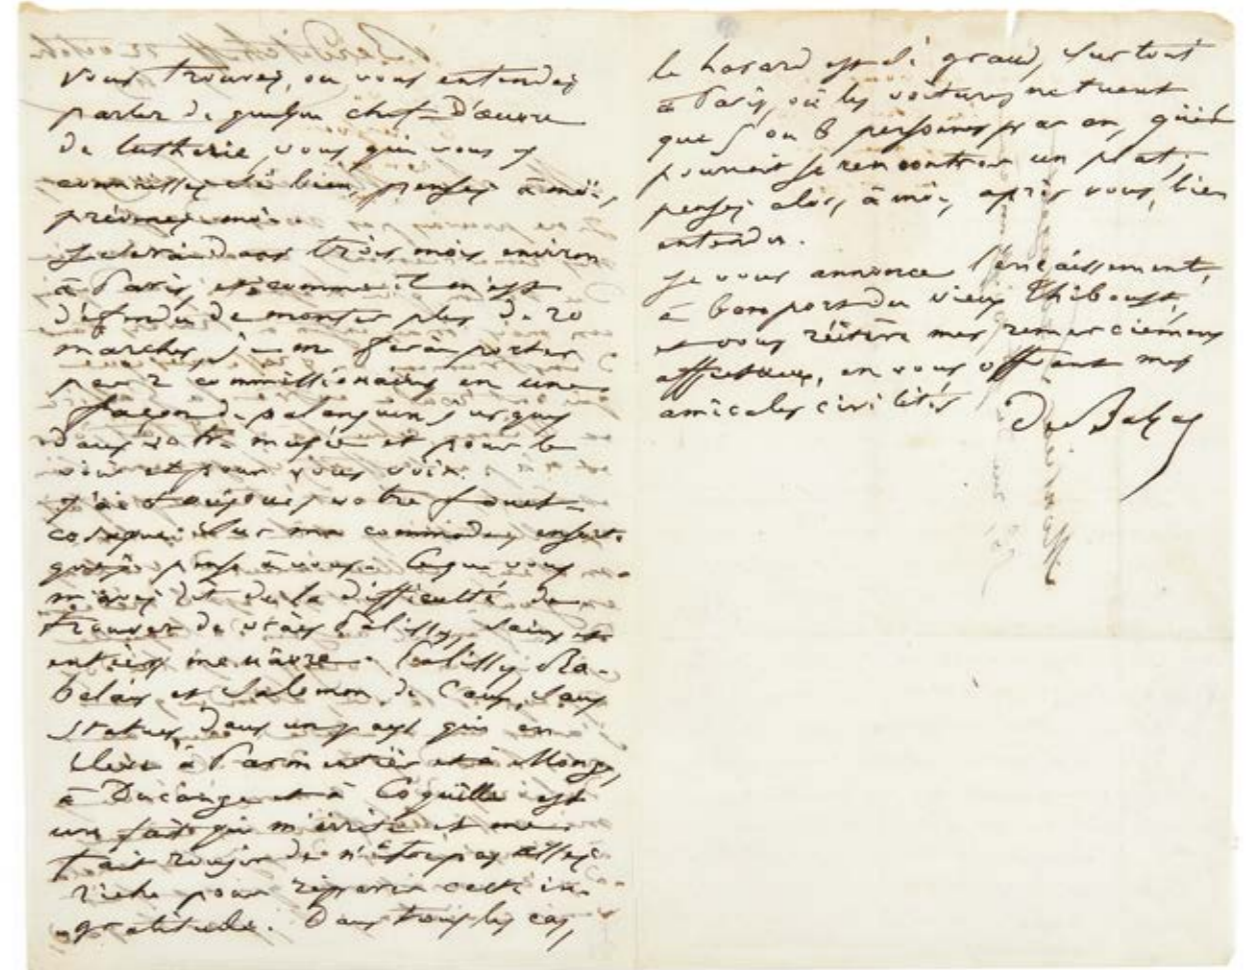 vous trouvez, ou vous entendez
parler de quelque chef-d'œuvre
de lutherie, vous qui vous y
connaissez si bien, pensez à moi,
prévenez moi.
Je serai dans trois mois environ
à Paris, et comme il m'est
défendu de monter plus de 20
marches, je me ferai porter
par 2 commissionaires en une
façon de palanquin jusques
dans votre musée et pour le
voir et pour vous voir.
J'ai toujours votre fouet
cosaque sur ma commode, ensorte
que je pense à vous. Ce que vous
m'avez dit de la difficulté de
trouver de vrais Palissy, sains et
entiers me navre. Palissy, Ra-
belais et Salomon de Caux, sans
statues, dans un pays qui en
élève à Parmentier et à Monge,
à Ducange et à Coquille est
un fait qui m'irrite et me
fait rougir de n'être pas assez
riche pour réparer cette in-
gratitude. Dans tous les cas,
le hasard est si grand, surtout
à Paris, où les voitures ne tuent
que 5 ou 6 personnes par an, qu'il
pourrait se rencontrer un plat;
pensez alors à moi, après vous, bien
entendu.
Je vous annonce l'encaissement,
à bon port du vieux Thiboust,
et vous réitère mes remerciemens
affectueux, en vous offrant mes
amicales civilités
De Balzac